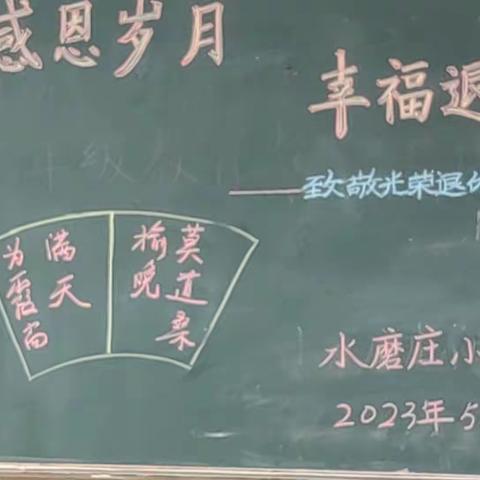 感恩岁月
幸福退
——致敬光荣退
莫道桑
榆晚
为霞尚
满天
水磨庄小
2023年5